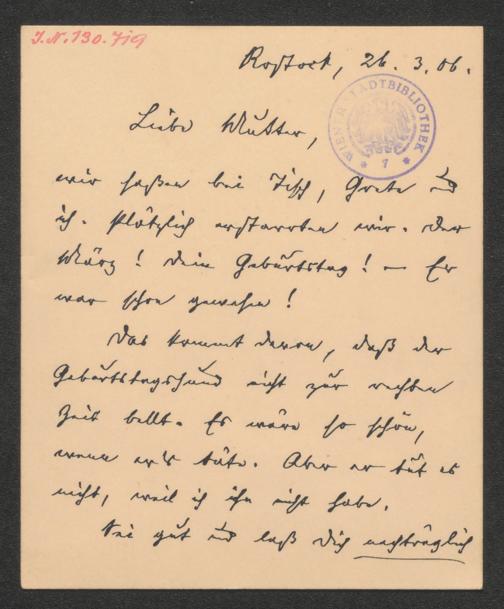 J.N. 130.719
Rostock, 26. 3. 06.
WIENER STADTBIBLIOTHEK
* 7 *
Liebe Mutter,
wir saßen bei Tisch, Grete und
ich. Plötzlich erstarrten wir. Der
März! Dein Geburtstag! — Er
war schon gewesen!
Das kommt davon, daß der
Geburtstagshund nicht zur rechten
Zeit bellt. Es wäre so schön,
wenn er's täte. Aber er tut es
nicht, weil ich ihn nicht habe.
Sei gut und laß Dich nachträglich